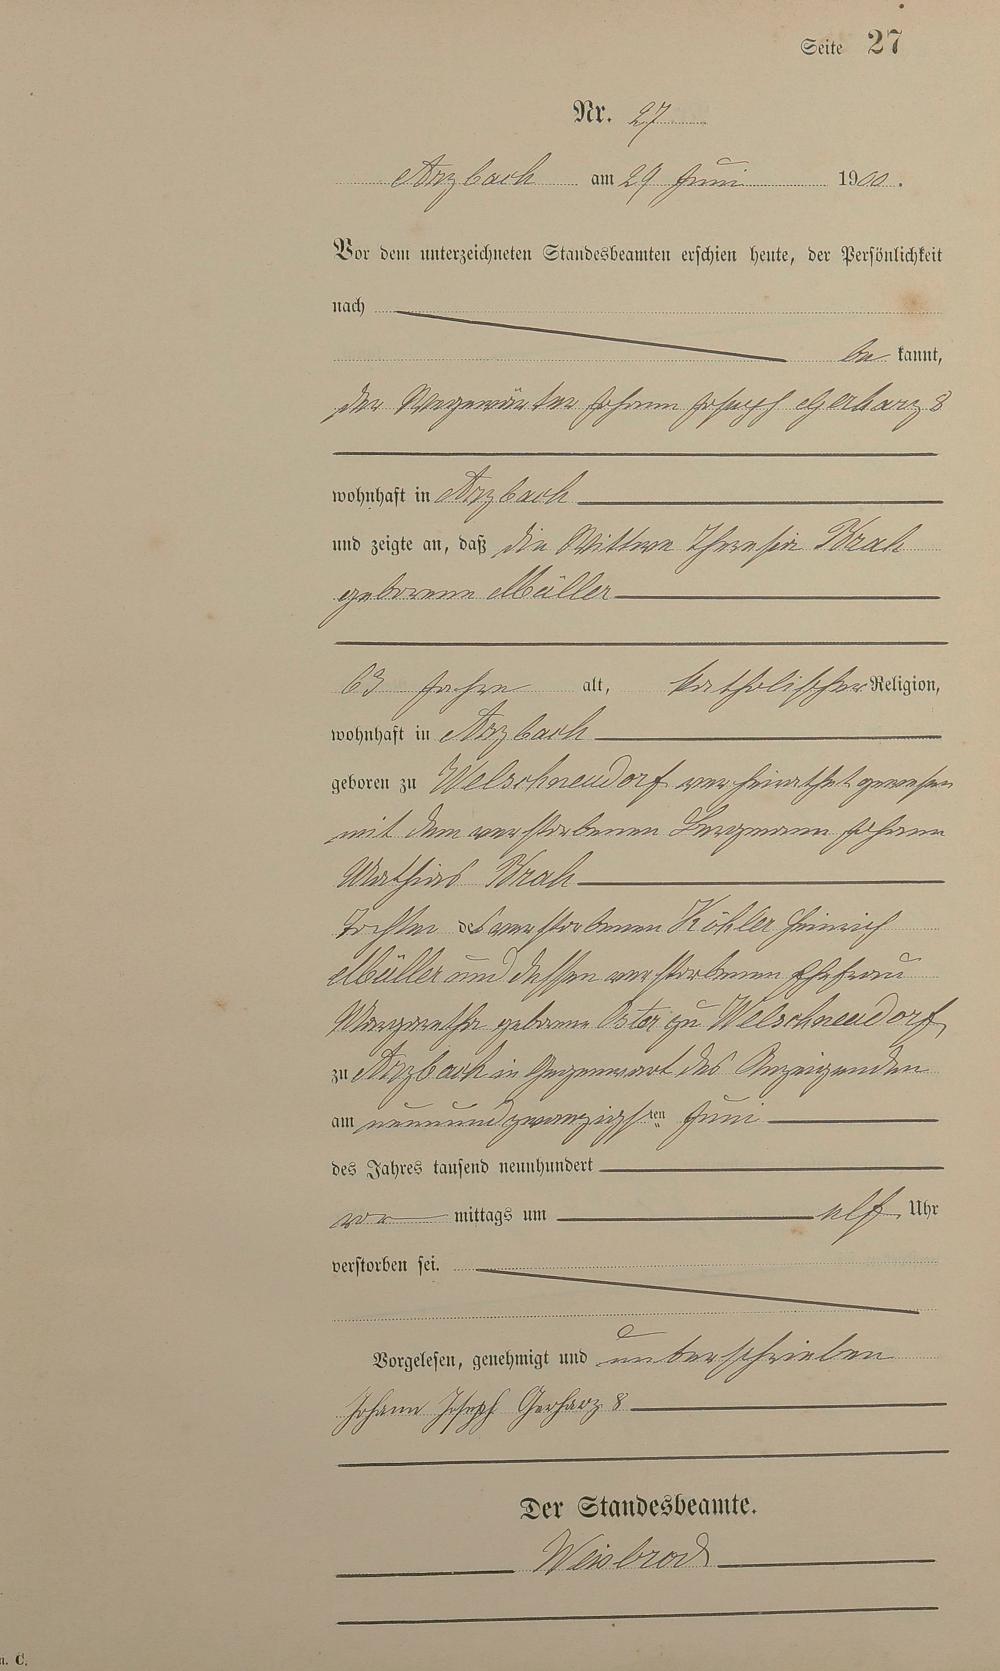 Seite 27
Nr. 27
Arzbach am 29 Juni 1900.
Vor dem unterzeichneten Standesbeamten erschien heute, der Persönlichkeit
nach
be kannt,
der Wegewärter Johann Joseph Gerharz 8
wohnhaft in Arzbach
und zeigte an, daß die Wittwe Theresia Krah
geborene Müller
63 Jahre alt, katholischer Religion,
wohnhaft in Arzbach
geboren zu Welschneudorf verheirathet gewesen
mit dem verstorbenen Bergmann Johann
Mathias Krah
Tochter des verstorbenen Köhler Heinrich
Müller und dessen verstorbenen Ehefrau
Margaretha geborene zu Welschneudorf
zu Arzbach in Gegenwart des Anzeigenden
am neunundzwanzigsten Juni
des Jahres tausend neunhundert
vor mittags um elf Uhr
verstorben sei.
Vorgelesen, genehmigt und unterschrieben
Johann Joseph Gerharz 8
Der Standesbeamte.
Weisbrod
n. C.